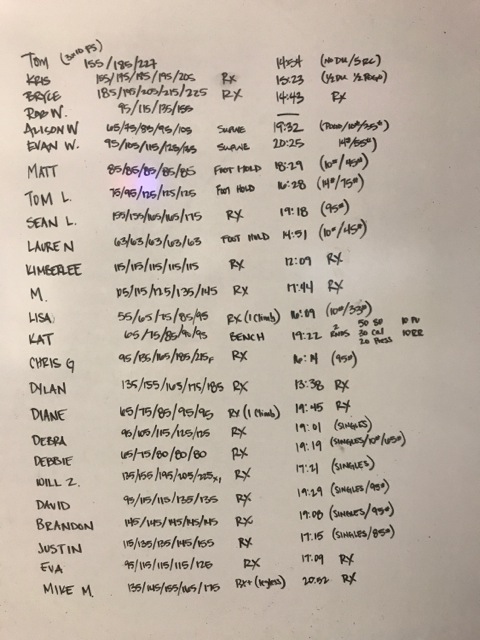 TOM (3x10 FS) 155/185/227 14:54 (NO DU/5 RC)
KRIS 155/175/185/195/205 RX 15:23 (1/2 DU 1/2 ROPE)
BRYCE 185/195/205/215/225 RX 14:43 RX
ROB W. 95/115/135/155 —
ALISON W 65/75/85/95/105 SWANE 19:32 (10#/35#)
EVAN W. 95/105/115/125/135 SWANE 20:25 14#/55#)
MATT 85/85/85/85/85 FOOT HOLD 18:29 (10#/45#)
TOM L. 75/95/125/125/125 FOOT HOLD 16:28 (14#/75#)
SEAN L. 155/155/165/165/175 RX 19:18 (95#)
LAUREN 63/63/63/63/63 FOOT HOLD 14:51 (10#/45#)
KIMBERLEE 115/115/115/115/115 RX 12:09 RX
M. 105/115/125/135/145 RX 17:44 RX
LISA 55/65/75/85/95 RX (1 CLIMB) 16:09 (10#/33#)
KAT 65/75/85/95/95 BENCH 19:22 2 RNDS 50 SU 30 CAL 20 PRESS 10 PU 10 RR
CHRIS G 95/135/165/185/215F RX 16:14 (95#)
DYLAN 135/155/165/175/185 RX 13:38 RX
DIANE 65/75/85/95/95 RX (1 CLIMB) 19:45 RX
DEBRA 95/105/115/125/125 RX 19:01 (SINGLES)
DEBBIE 65/75/80/80/80 RX 19:19 (SINGLES/10#/65#)
WILL Z. 135/155/195/205/225x1 RX 17:21 (SINGLES)
DAVID 95/115/115/135/135 RX 19:29 (SINGLES/95#)
BRANDON 145/145/145/145/145 RX 19:08 (SINGLES/95#)
JUSTIN 115/135/135/145/155 RX 17:15 (SINGLES/85#)
EVA 95/115/115/115/125 RX 17:09 RX
MIKE M. 135/145/155/165/175 RX+ (LEGLESS) 20:52 RX